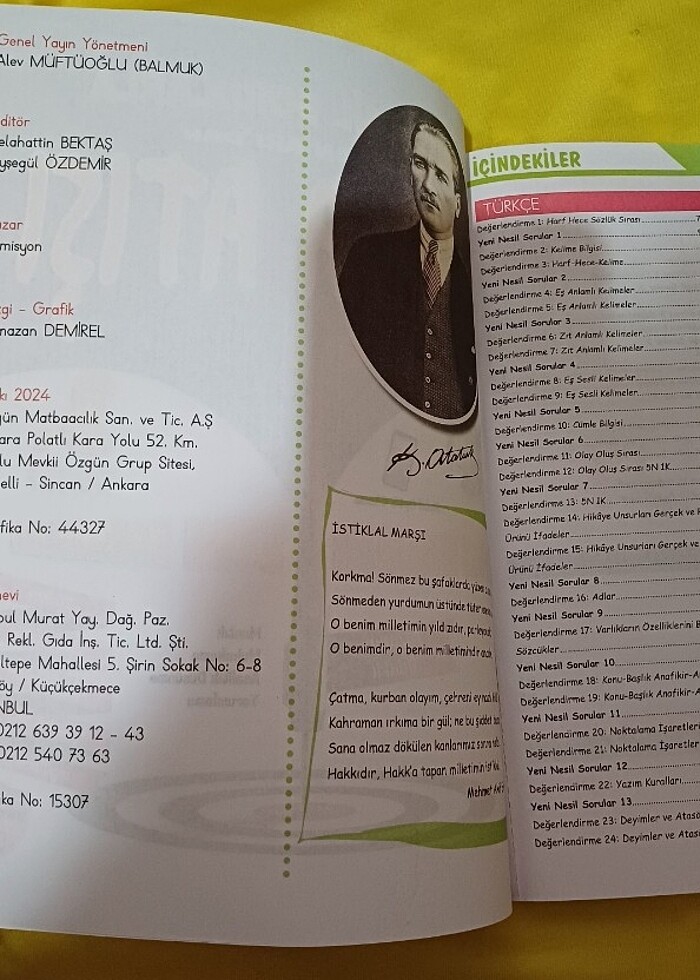 Genel Yayın Yönetmeni
Alev MÜFTÜOĞLU (BALMUK)
ditör
elahattin BEKTAŞ
yşegül ÖZDEMİR
zar
misyon
gi - Grafik
mazan DEMİREL
kı 2024
gün Matbaacılık San. ve Tic. A.Ş
ara Polatlı Kara Yolu 52. Km.
lu Mevkii Özgün Grup Sitesi,
elli - Sincan / Ankara
fika No: 44327
nevi
bul Murat Yay. Dağ. Paz.
Rekl. Gıda İnş. Tic. Ltd. Şti.
ltepe Mahallesi 5. Şirin Sokak No: 6-8
öy / Küçükçekmece
NBUL
0212 639 39 12 - 43
0212 540 73 63
ka No: 15307
K. Atatürk
İSTİKLAL MARŞI
Korkma! Sönmez bu şafaklarda
Sönmeden yurdumun üstünde tüten
O benim milletimin yıldızıdır, parlayacak
O benimdir, o benim milletimindir ancak
Çatma, kurban olayım, çehreni ey
Kahraman ırkıma bir gül; ne bu şiddet
Sana olmaz dökülen kanlarımız sonra
Hakkıdır, Hakk'a tapan milletimin
Mehmet
İÇİNDEKİLER
TÜRKÇE
Değerlendirme 1: Harf Hece Sözlük Sırası
Yeni Nesil Sorular 1
Değerlendirme 2: Kelime Bilgisi
Değerlendirme 3: Harf-Hece-Kelime
Yeni Nesil Sorular 2
Değerlendirme 4: Eş Anlamlı Kelimeler
Değerlendirme 5: Eş Anlamlı Kelimeler
Yeni Nesil Sorular 3
Değerlendirme 6: Zıt Anlamlı Kelimeler
Değerlendirme 7: Zıt Anlamlı Kelimeler
Yeni Nesil Sorular 4
Değerlendirme 8: Eş Sesli Kelimeler
Değerlendirme 9: Eş Sesli Kelimeler
Yeni Nesil Sorular 5
Değerlendirme 10: Cümle Bilgisi
Yeni Nesil Sorular 6
Değerlendirme 11: Olay Oluş Sırası
Değerlendirme 12: Olay Oluş Sırası 5N 1K
Yeni Nesil Sorular 7
Değerlendirme 13: 5N 1K
Değerlendirme 14: Hikâye Unsurları Gerçek ve H
Ürünü İfadeler
Değerlendirme 15: Hikâye Unsurları Gerçek ve
Ürünü İfadeler
Yeni Nesil Sorular 8
Değerlendirme 16: Adlar
Yeni Nesil Sorular 9
Değerlendirme 17: Varlıkların Özelliklerini B
Sözcükler
Yeni Nesil Sorular 10
Değerlendirme 18: Konu-Başlık Anafikir-A
Değerlendirme 19: Konu-Başlık Anafikir-A
Yeni Nesil Sorular 11
Değerlendirme 20: Noktalama İşaretleri
Değerlendirme 21: Noktalama İşaretler
Yeni Nesil Sorular 12
Değerlendirme 22: Yazım Kuralları
Yeni Nesil Sorular 13
Değerlendirme 23: Deyimler ve Atasö
Değerlendirme 24: Deyimler ve Atasö